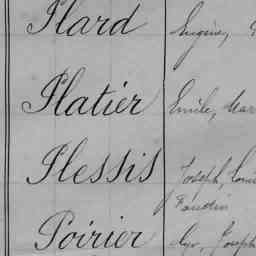 Plard Eugène,
Platier Emile, Mar
Plessis Joseph, Loui
Faustin
Poirier Cyr, Joseph